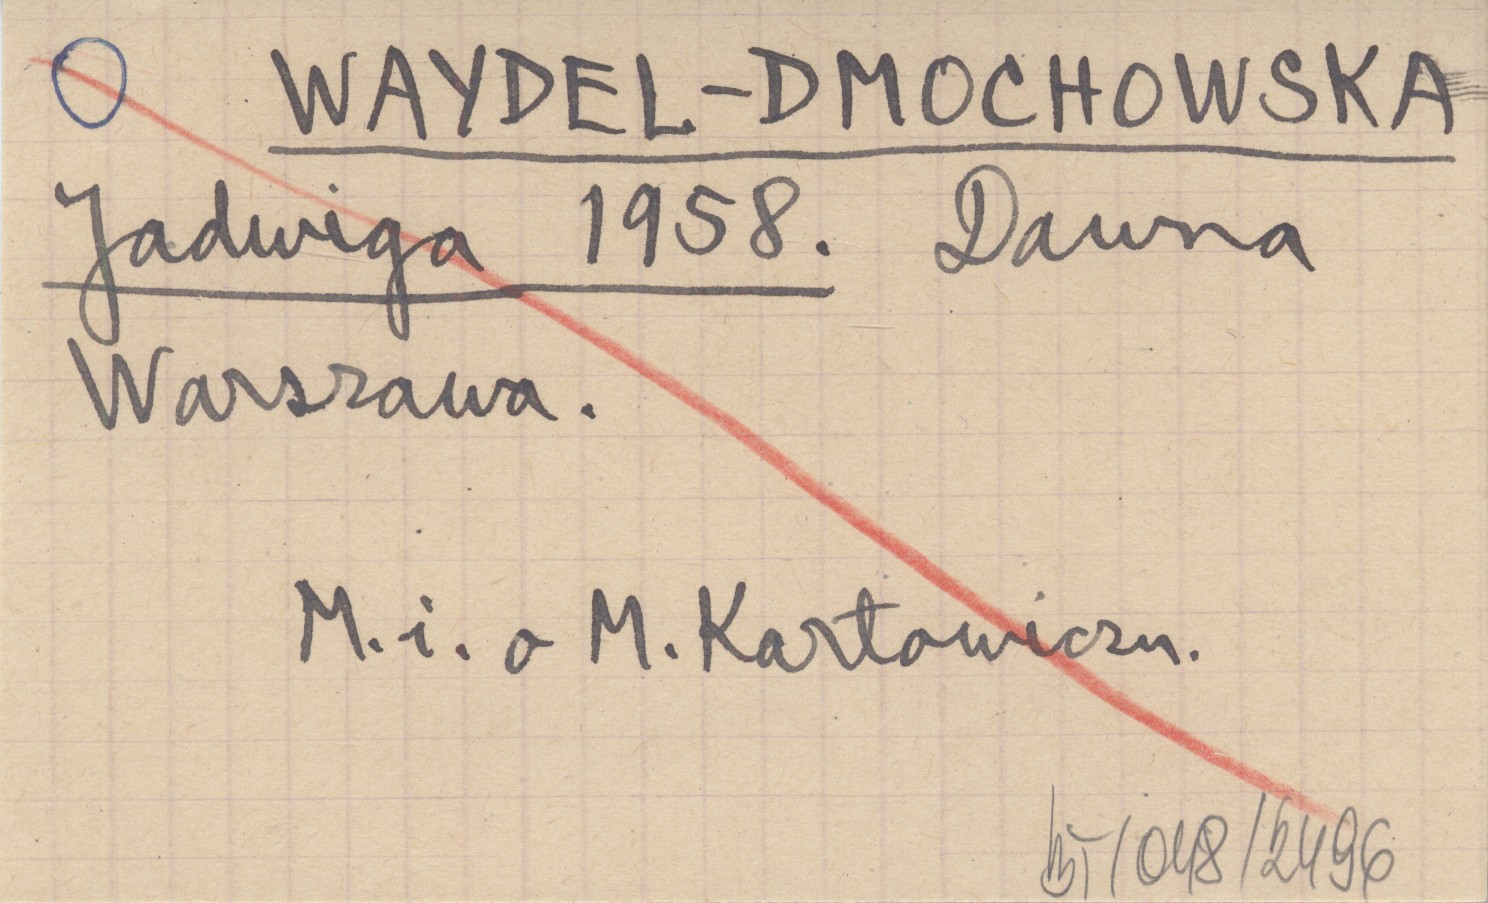 WAYDEL-DMOCHOWSKA
Jadwiga 1958. Dawna
Warszawa.
M. i. o M. Karłowiczu.
BT/048/2496